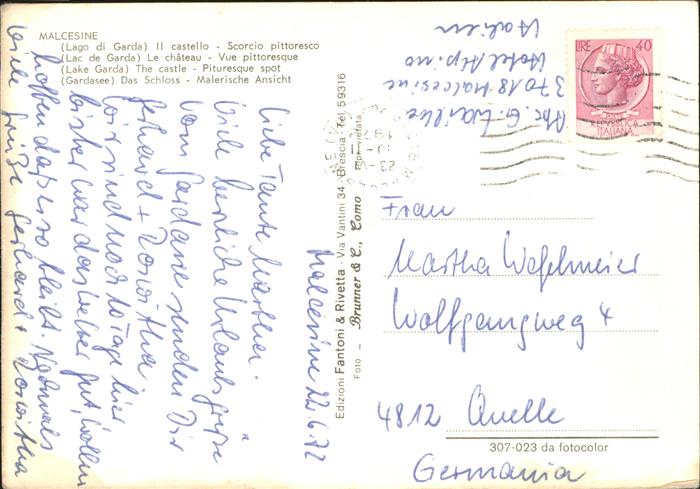 MALCESINE
(Lago di Garda) Il castello - Scorcio pittoresco
(Lac de Garda) Le château - Vue pittoresque
(Lake Garda) The castle - Pituresque spot
(Gardasee) Das Schloss - Malerische Ansicht
Malcesine 22.6.72
Liebe Tante Martha.
Viele herzliche Urlaubsgrüße
vom Gardasee senden Dir
Gerhard + Roswitha
wir sind noch 10 Tage hier
bisher war das Wetter gut, wollen
hoffen daß es so bleibt. Nochmals
viele Grüße Gerhard + Roswitha
Edizioni Fantoni & Rivetta - Via Vantini 34 - Brescia - Tel. 59316
Foto - Brunner & C., Como Ripr. vietata
Abs. G.
37018 Malcesine
Hotel Alpino
Italien
LIRE 40
REPUBBLICA
ITALIANA
Frau
Martha
Wolfgangweg 4
4812 Quelle
Germania
307-023 da fotocolor